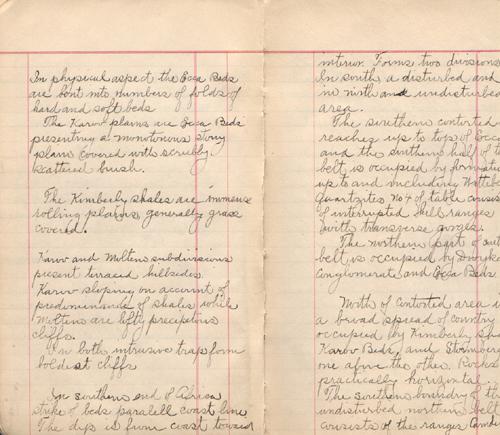 In physical aspect the Ecca Beds
are bent into numbers of folds of
hard and soft beds
The Karoo plains are Ecca Beds
presenting a monotonous stony
plain covered with scrubby
scattered bush.
The Kimberly shales are immense
rolling plains, generally grass
covered.
Karoo and Molteno subdivisions
present teraced hillsides.
Karoo sloping on account of
predominance of shales while
Moltens are lofty precipitous
cliffs.
In both intrusive trap form
boldest cliffs
In southern end of Africa
strike of beds paralell coast line
The dip is from coast toward
interior. Forms two divisions
In south a disturbed and
in north and undisturbed
area.
The southern contorted
reaches up to top of Ecca
and the southern half of
belt is occupied by
up to and including
Quartzites No 4 of table consis
of interrupted hill ranges
with transverse gorges.
The northern part of
belt is occupied by Dwyka
Conglomerate and Ecca Beds
North of Contorted area
a broad spread of country
occupied by Kimberly
Karoo Beds, and Stormberg
one after the other. Rocks
practically horizontal.
The southern boundry of th
undisturbed northern belt
consists of the ranges Camd